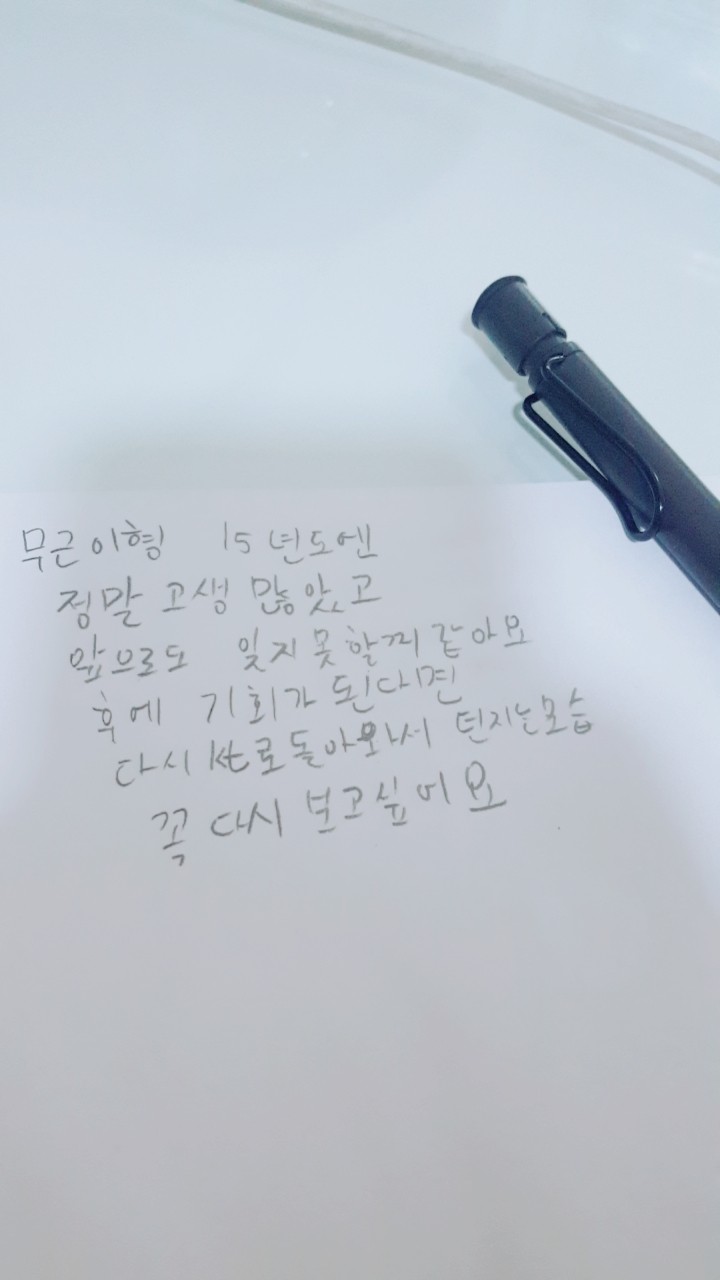 무근이형 15년도엔
정말 고생 많았고
앞으로도 잊지못할꺼같아요
후에 기회가 된다면
다시 kt로돌아와서 던지는모습
꼭 다시 보고싶어요